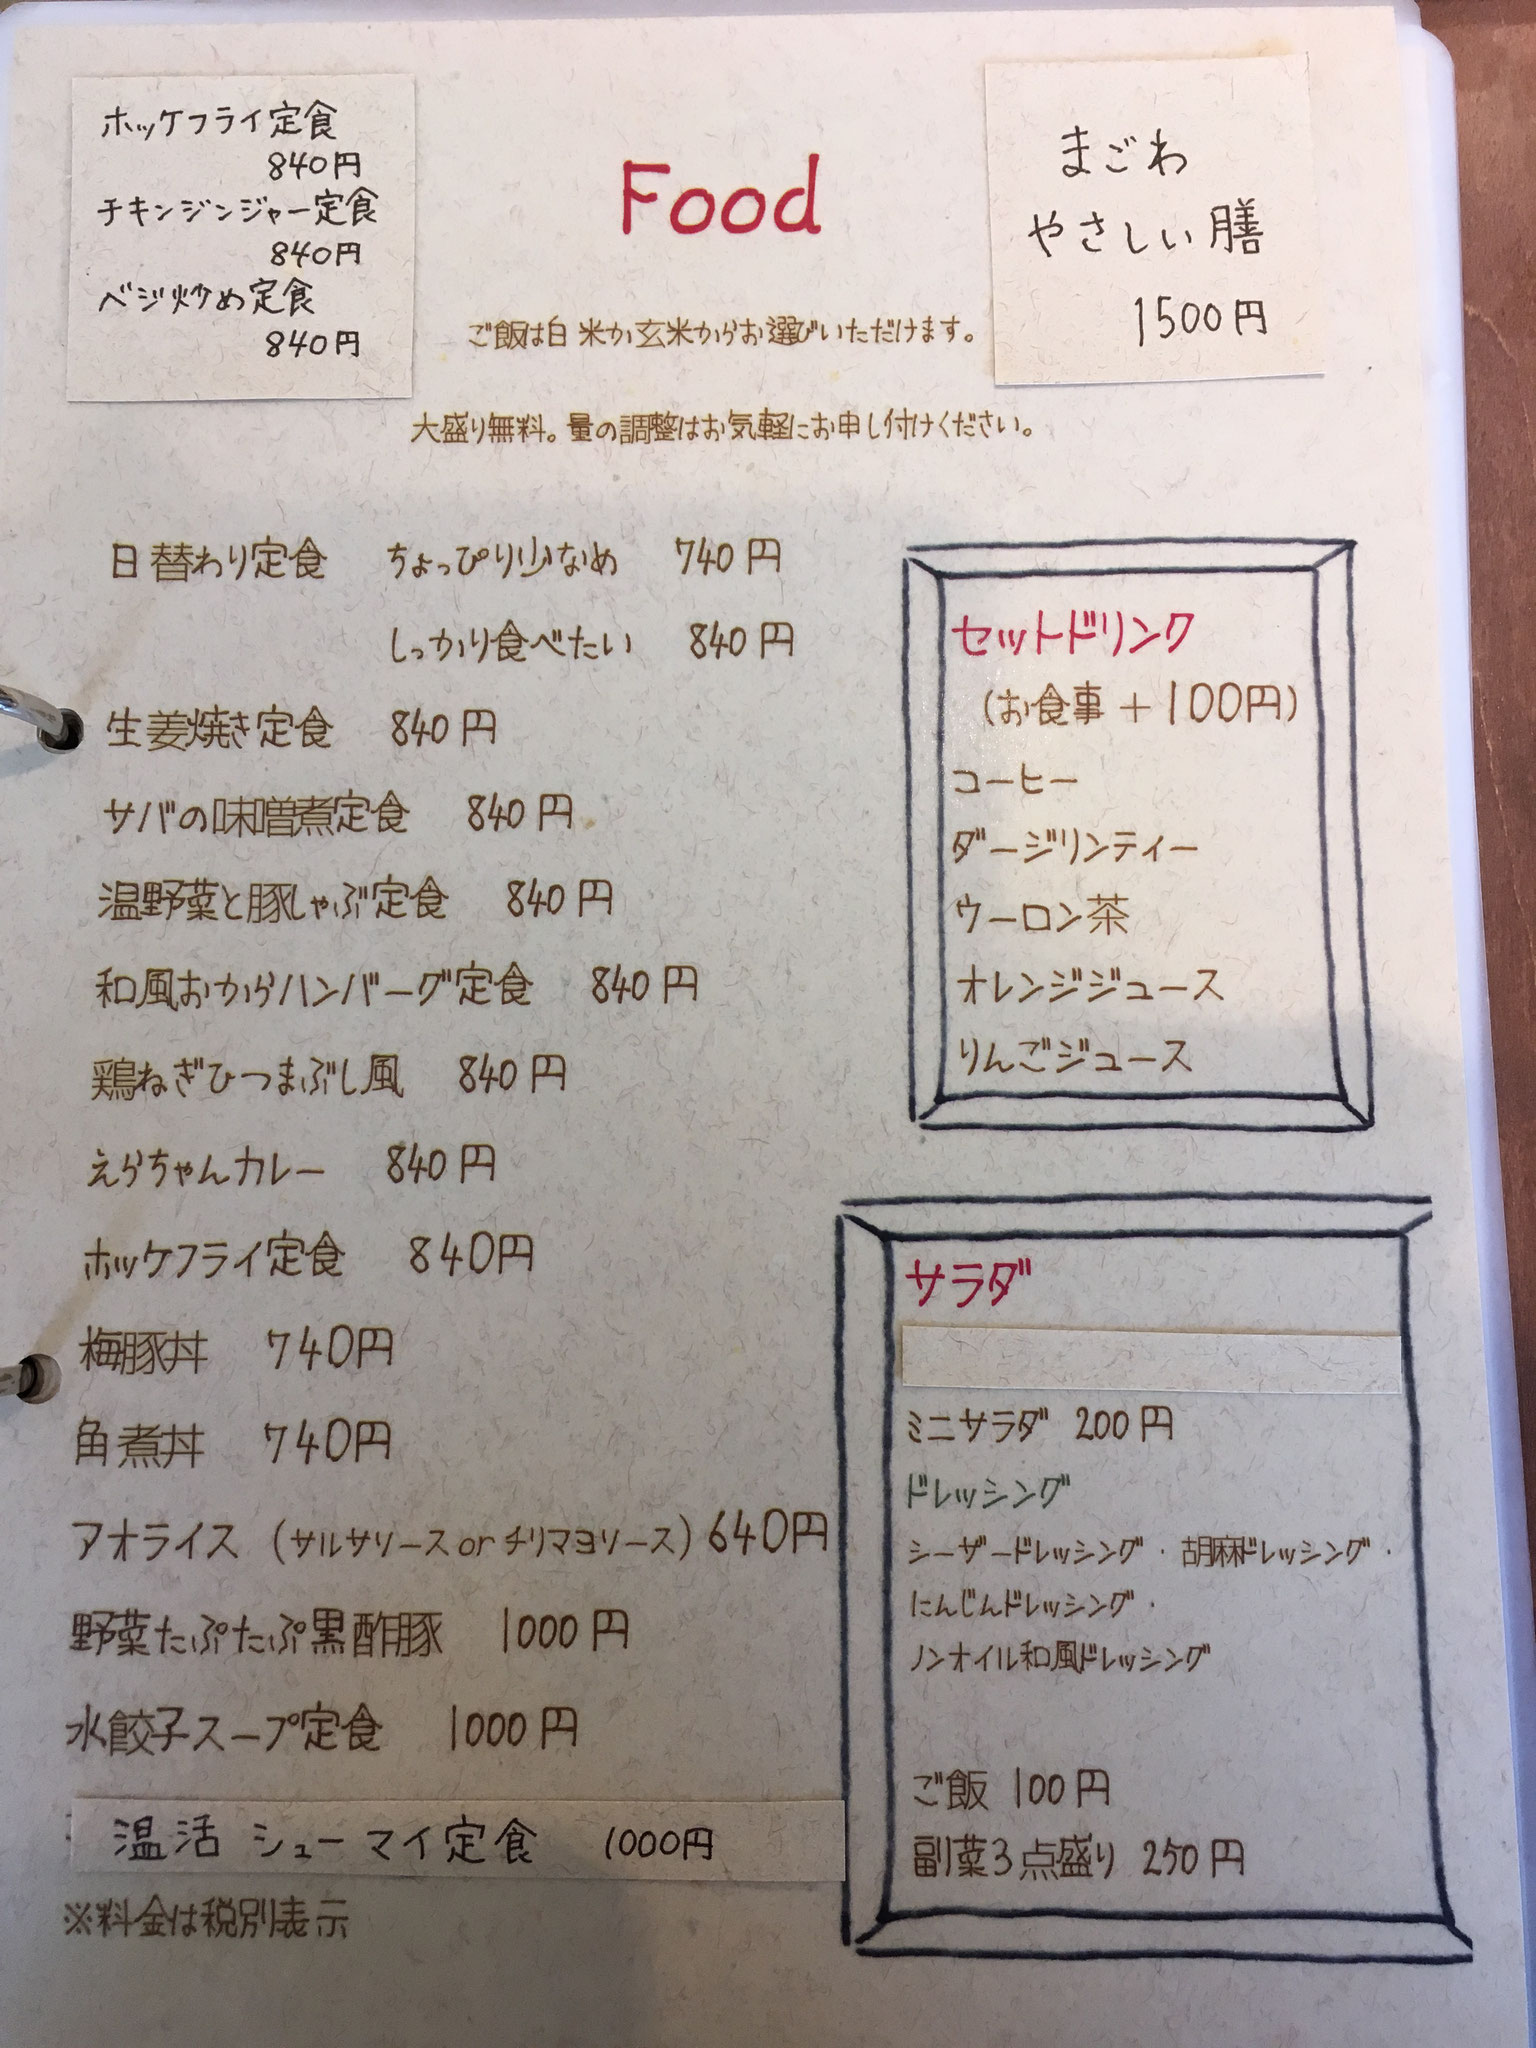 ホッケフライ定食
840円
チキンジンジャー定食
840円
ベジ炒め定食
840円
Food
まごわ
やさしい膳
1500円
ご飯は白米か玄米からお選びいただけます。
大盛り無料。量の調整はお気軽にお申し付けください。
日替わり定食 ちょっぴり少なめ 740円
しっかり食べたい 840円
生姜焼き定食 840円
サバの味噌煮定食 840円
温野菜と豚しゃぶ定食 840円
和風おからハンバーグ定食 840円
鶏ねぎひつまぶし風 840円
えらちゃんカレー 840円
ホッケフライ定食 840円
梅豚丼 740円
角煮丼 740円
アオライス (サルサソース or チリマヨソース) 640円
野菜たぷたぷ黒酢豚 1000円
水餃子スープ定食 1000円
温活 シューマイ定食 1000円
※料金は税別表示
セットドリンク
(お食事 + 100円)
コーヒー
ダージリンティー
ウーロン茶
オレンジジュース
りんごジュース
サラダ
ミニサラダ 200円
ドレッシング
シーザードレッシング・胡麻ドレッシング・
にんじんドレッシング・
ノンオイル和風ドレッシング
ご飯 100円
副菜3点盛り 250円